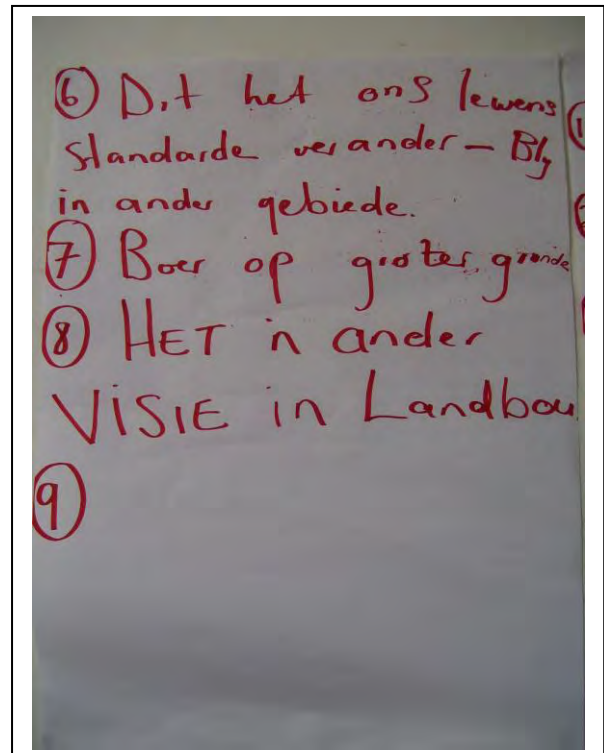 ⑥ Dit het ons lewens
standarde verander – Bly
in ander gebiede.
⑦ Boer op groter gronde
⑧ HET 'n ander
VISIE in Landbou
⑨